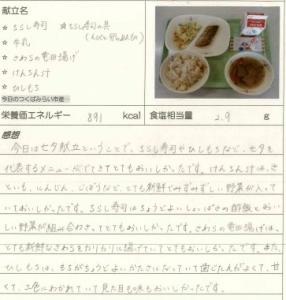 献立名
★ ちらし寿司 ★ちらし寿司の具
★ 牛乳
★ さわらの竜田揚げ
★ けんちん汁
★ ひしもち
今日のつくばみらい市産
栄養価エネルギー 891 kcal 食塩相当量 2.9 g
感想
今日は七夕献立ということで、ちらし寿司やひしもちなど、七夕を
代表するメニューがでてきてとてもおいしかったです。けんちん汁は、さ
といも、にんじん、ごぼうなど、とても新鮮でみずみずしい野菜が入って
いておいしかったです。ちらし寿司はちょうどよいしょっぱさの酢飯とおい
しい野菜が組み合わさってとてもおいしかったです。さわらの竜田揚げは、
とても新鮮なさわらをカリカリに揚げていてとてもおいしかったです。また、
ひしもちは、もちがちょうどよいかたさになっていて歯ごたえがよくて、甘
くて、三色にわかれていて見た目も味もおいしかったです。